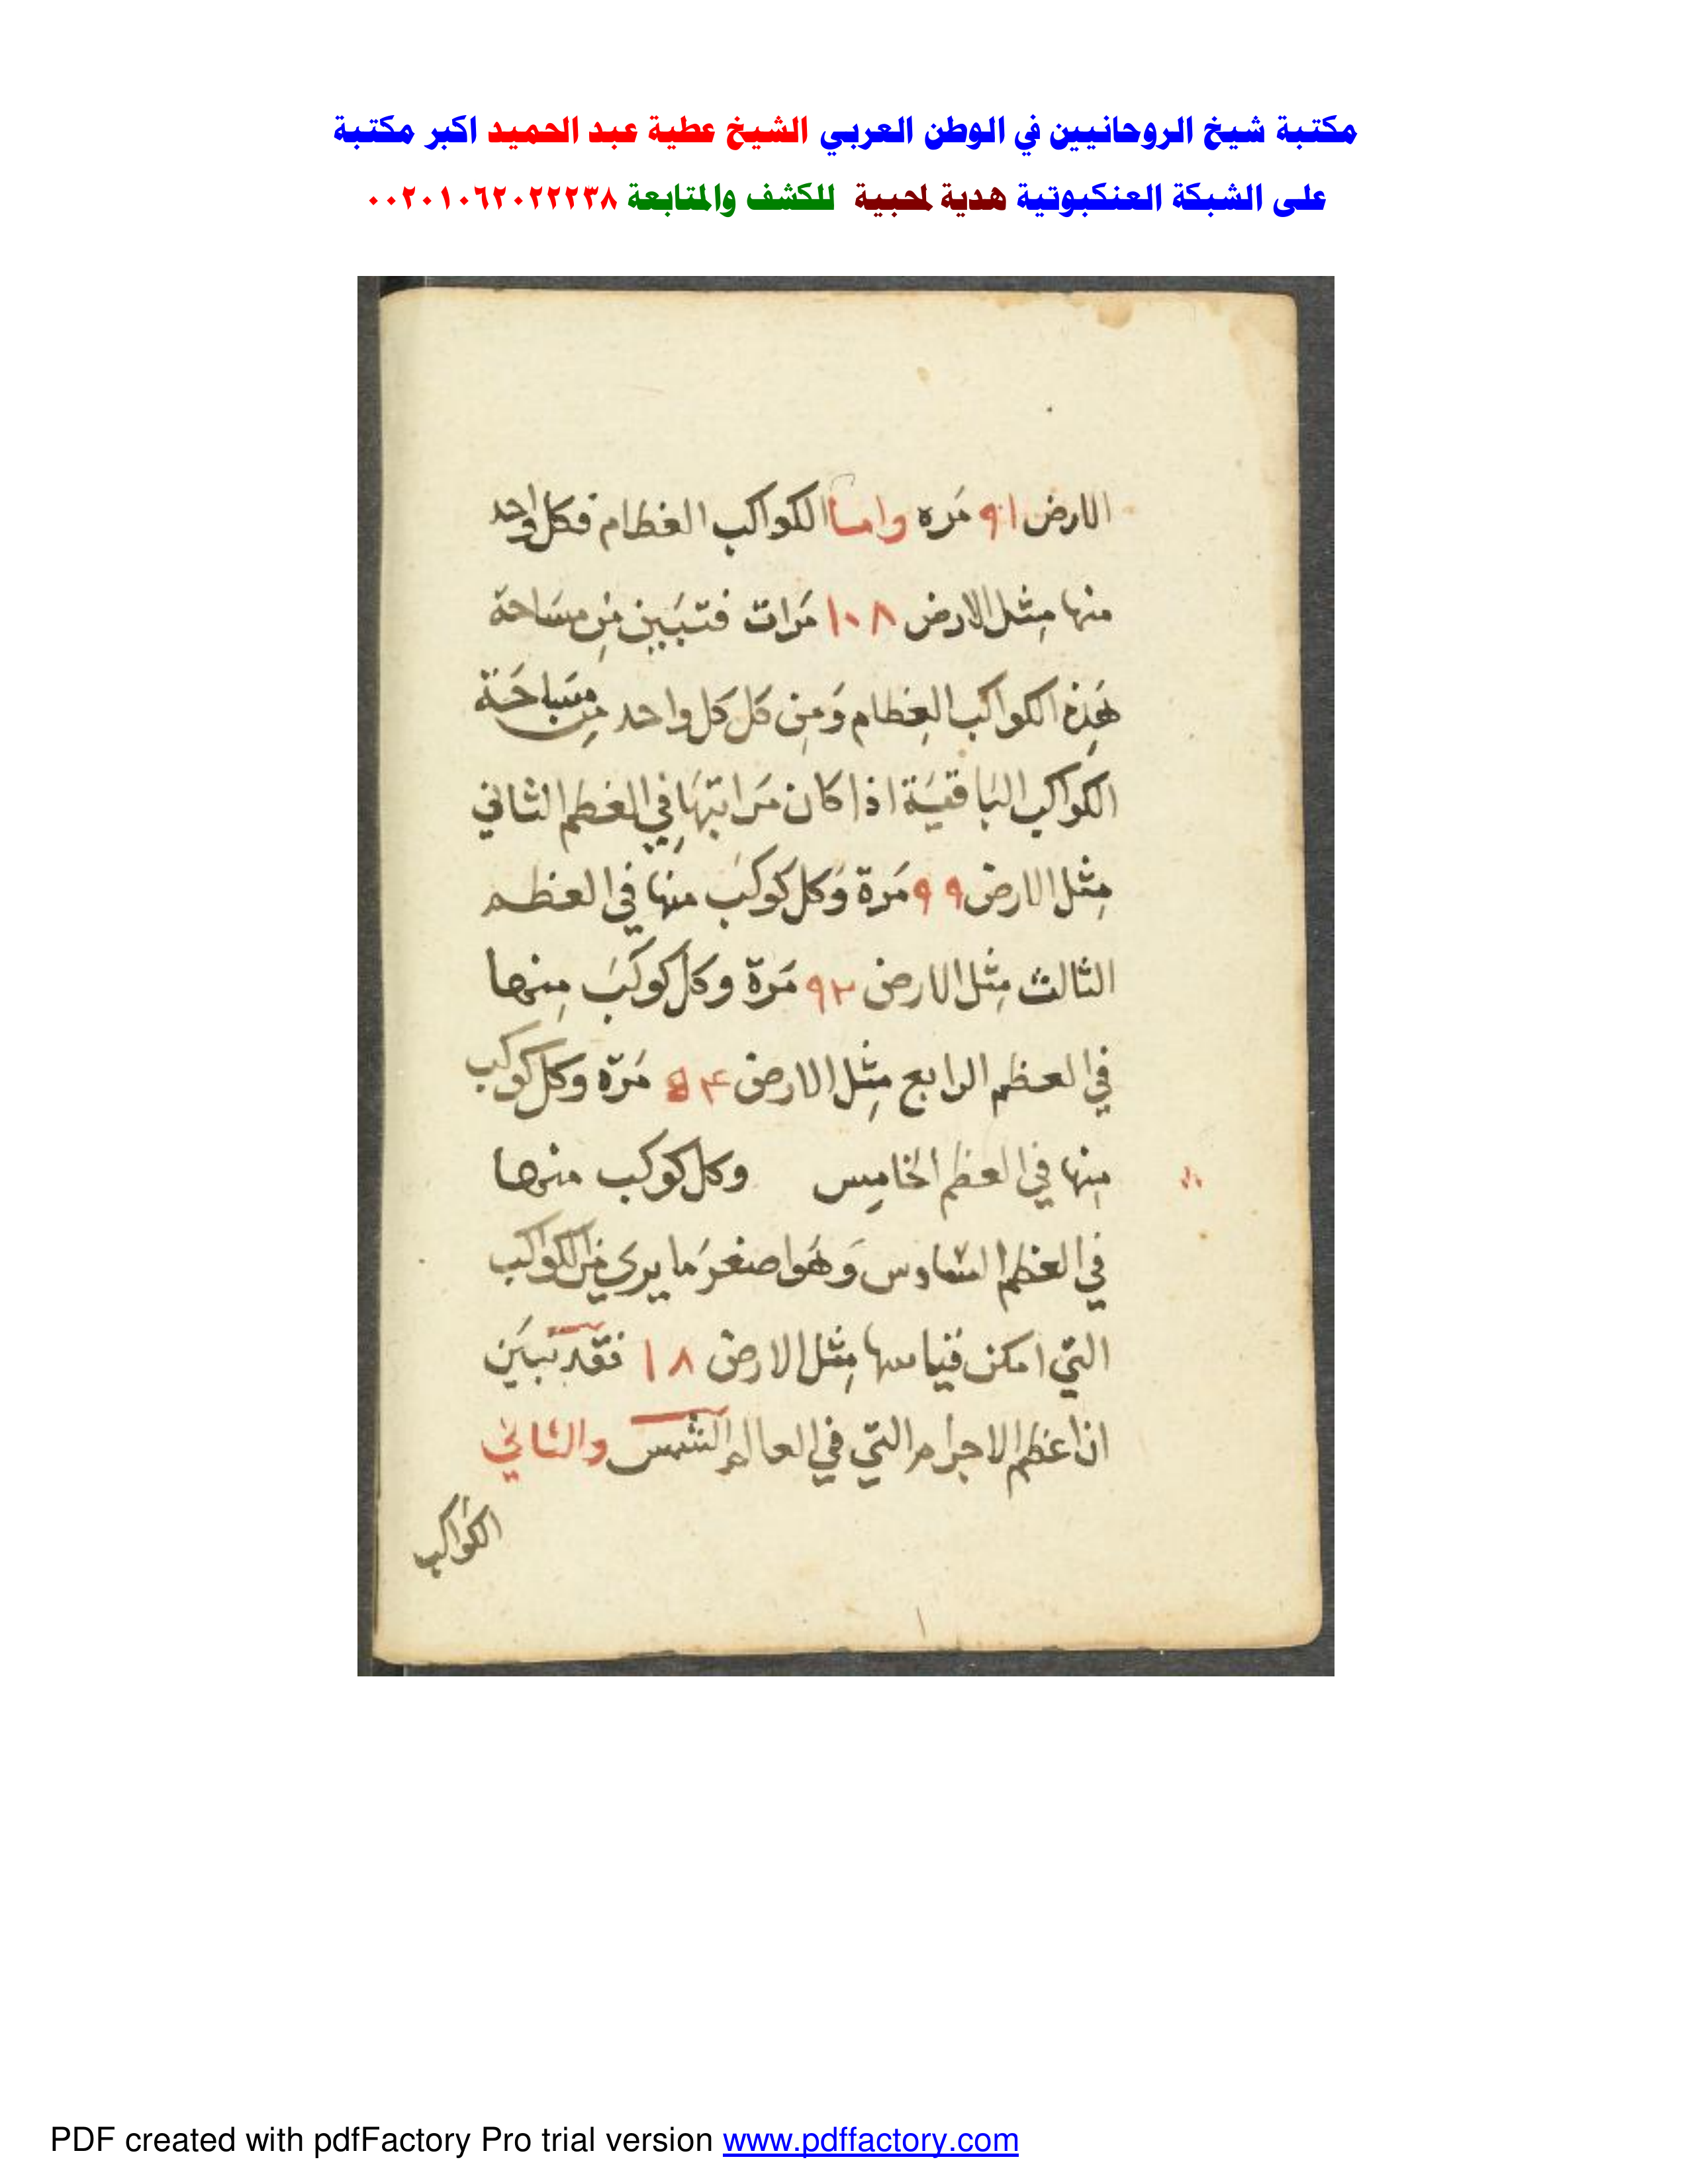 مكتبة شيخ الروحانيين في الوطن العربي الشيخ عطية عبد الحميد اكبر مكتبة
على الشبكة العنكبوتية هدية لمحبية للكشف والمتابعة ٠٠٢٠١٠٦٢٠٢٢٢٣٨
الارض ٩١ مَره واما الكواكب العظام فكل واحد
منها مِثل الارض ١٠٨ مَرات فتبَيين مِن مسَاحة
هَذِه الكواكب العِظام وَمِن كل كل واحد مِن مسَاحَة
الكواكب البَاقيَة اذا كان مَراتبهَا في العظم الثاني
مِثل الارض ٩٩ مَرة وَكل كوكب منها في العظم
الثالث مِثل الارض ٩٢ مَرة وكل كوكَب مِنها
في العظم الرابع مِثل الارض ٥٤ مَرة وكل كوكب
مِنها في العظم الخامِس وكل كوكب منها
في العظم السادس وَهَو اصغر مَا يرى مِن الكواكب
التي امكن قياسها مِثل الارض ١٨ فقد تبيَن
ان اعظم الاجرام التي في العالم الشمس والثاني
الكواكب
PDF created with pdfFactory Pro trial version www.pdffactory.com